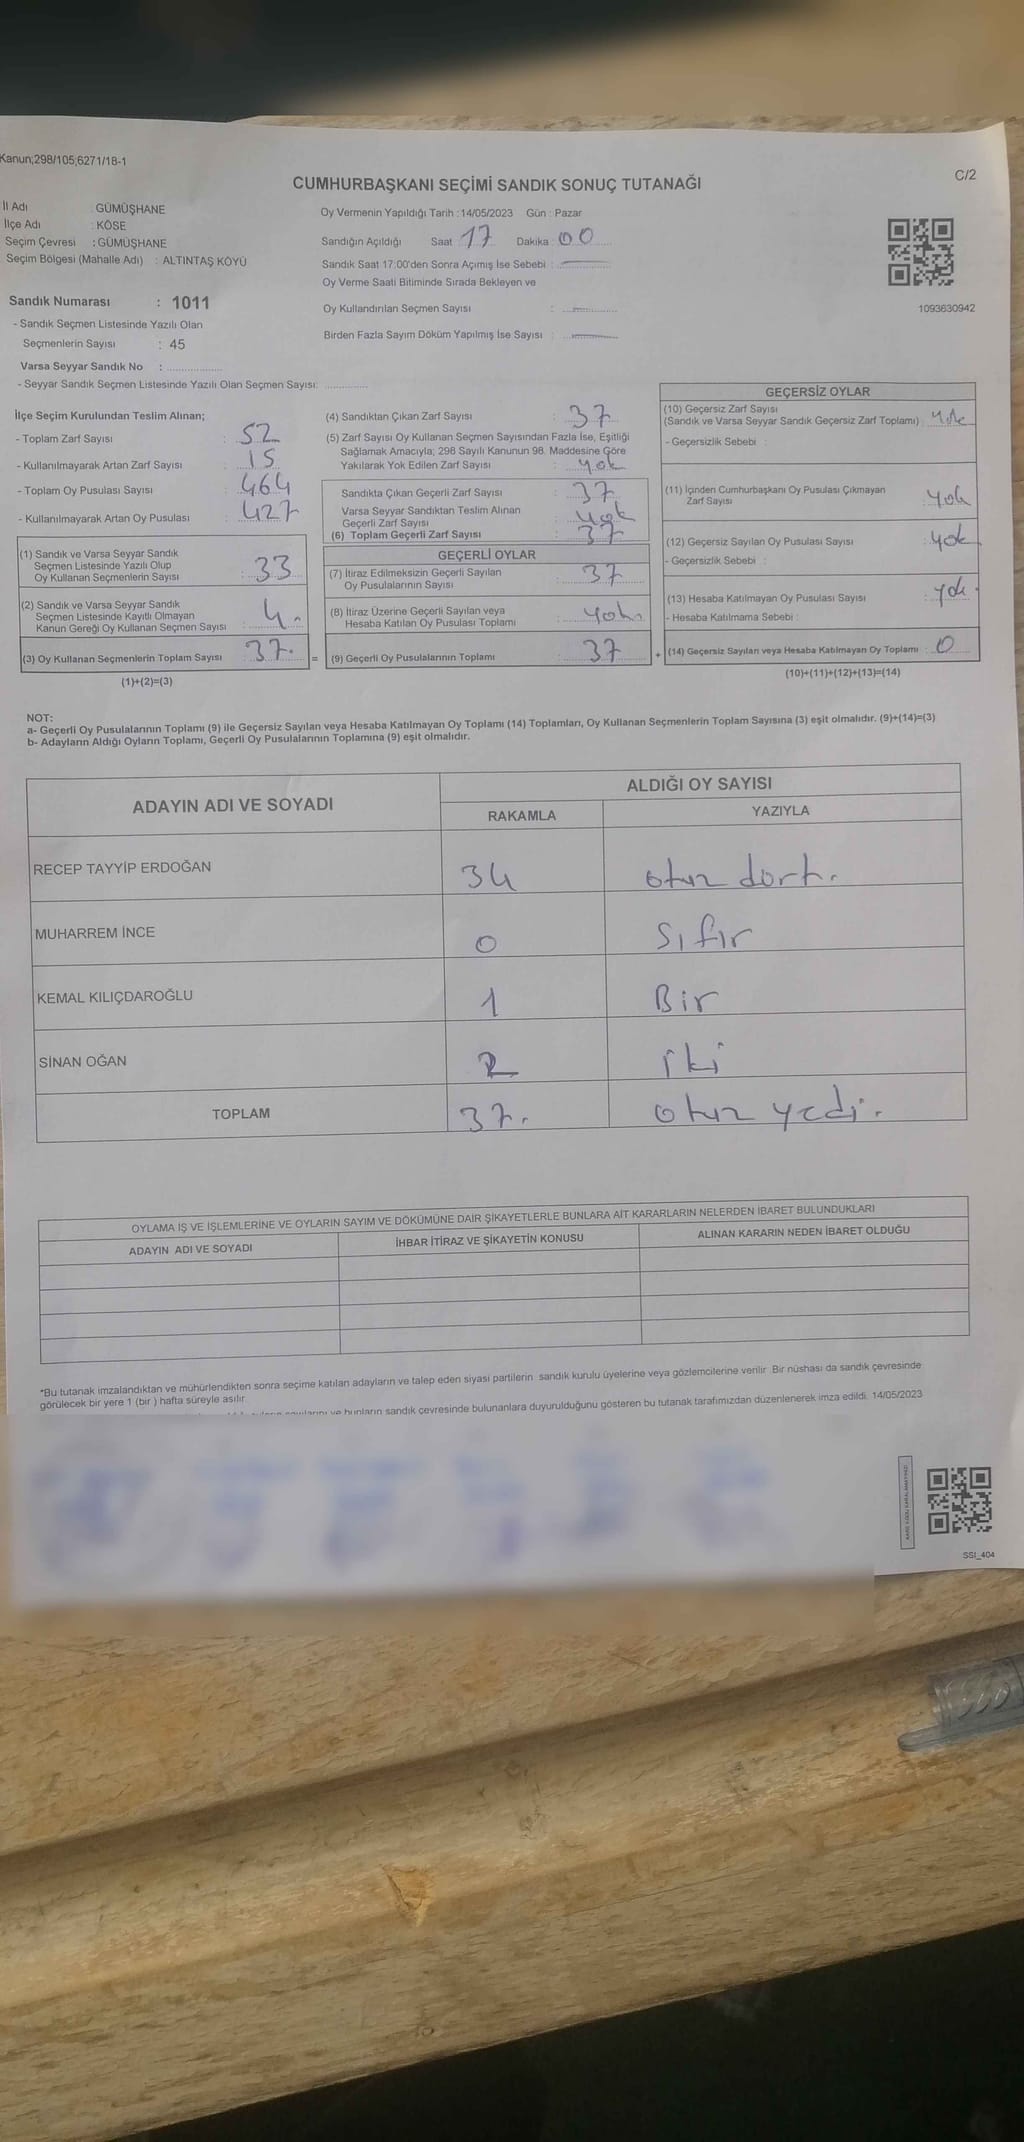 Kanun;298/105;6271/18-1
C/2
CUMHURBAŞKANI SEÇİMİ SANDIK SONUÇ TUTANAĞI
İl Adı : GÜMÜŞHANE
İlçe Adı : KÖSE
Seçim Çevresi : GÜMÜŞHANE
Seçim Bölgesi (Mahalle Adı) : ALTINTAŞ KÖYÜ
Sandık Numarası : 1011
- Sandık Seçmen Listesinde Yazılı Olan
Seçmenlerin Sayısı : 45
Varsa Seyyar Sandık No :
- Seyyar Sandık Seçmen Listesinde Yazılı Olan Seçmen Sayısı:
Oy Vermenin Yapıldığı Tarih : 14/05/2023 Gün : Pazar
Sandığın Açıldığı Saat : 17 Dakika : 00
Sandık Saat 17:00'den Sonra Açımış İse Sebebi :
Oy Verme Saati Bitiminde Sırada Bekleyen ve
Oy Kullandırılan Seçmen Sayısı :
Birden Fazla Sayım Döküm Yapılmış İse Sayısı :
1093630942
İlçe Seçim Kurulundan Teslim Alınan;
- Toplam Zarf Sayısı : 52
- Kullanılmayarak Artan Zarf Sayısı : 15
- Toplam Oy Pusulası Sayısı : 464
- Kullanılmayarak Artan Oy Pusulası : 427
(1) Sandık ve Varsa Seyyar Sandık
Seçmen Listesinde Yazılı Olup
Oy Kullanan Seçmenlerin Sayısı : 33
(2) Sandık ve Varsa Seyyar Sandık
Seçmen Listesinde Kayıtlı Olmayan
Kanun Gereği Oy Kullanan Seçmen Sayısı : 4.
(3) Oy Kullanan Seçmenlerin Toplam Sayısı : 37.
(1)+(2)=(3)
(4) Sandıktan Çıkan Zarf Sayısı : 37
(5) Zarf Sayısı Oy Kullanan Seçmen Sayısından Fazla İse, Eşitliği
Sağlamak Amacıyla; 298 Sayılı Kanunun 98. Maddesine Göre
Yakılarak Yok Edilen Zarf Sayısı : yok
Sandıkta Çıkan Geçerli Zarf Sayısı : 37
Varsa Seyyar Sandıktan Teslim Alınan
Geçerli Zarf Sayısı : yok
(6) Toplam Geçerli Zarf Sayısı : 37
GEÇERLİ OYLAR
(7) İtiraz Edilmeksizin Geçerli Sayılan
Oy Pusulalarının Sayısı : 37
(8) İtiraz Üzerine Geçerli Sayılan veya
Hesaba Katılan Oy Pusulası Toplamı : yok.
= (9) Geçerli Oy Pusulalarının Toplamı : 37
GEÇERSİZ OYLAR
(10) Geçersiz Zarf Sayısı
(Sandık ve Varsa Seyyar Sandık Geçersiz Zarf Toplamı) : yok
- Geçersizlik Sebebi :
(11) İçinden Cumhurbaşkanı Oy Pusulası Çıkmayan
Zarf Sayısı : yok
(12) Geçersiz Sayılan Oy Pusulası Sayısı : yok
- Geçersizlik Sebebi :
(13) Hesaba Katılmayan Oy Pusulası Sayısı : yok.
- Hesaba Katılmama Sebebi :
+ (14) Geçersiz Sayılan veya Hesaba Katılmayan Oy Toplamı : 0
(10)+(11)+(12)+(13)=(14)
NOT:
a- Geçerli Oy Pusulalarının Toplamı (9) ile Geçersiz Sayılan veya Hesaba Katılmayan Oy Toplamı (14) Toplamları, Oy Kullanan Seçmenlerin Toplam Sayısına (3) eşit olmalıdır. (9)+(14)=(3)
b- Adayların Aldığı Oyların Toplamı, Geçerli Oy Pusulalarının Toplamına (9) eşit olmalıdır.
ADAYIN ADI VE SOYADI
ALDIĞI OY SAYISI
RAKAMLA YAZIYLA
RECEP TAYYİP ERDOĞAN 34 otuz dört.
MUHARREM İNCE 0 Sıfır
KEMAL KILIÇDAROĞLU 1 Bir
SİNAN OĞAN 2 iki
TOPLAM 37. otuz yedi.
OYLAMA İŞ VE İŞLEMLERİNE VE OYLARIN SAYIM VE DÖKÜMÜNE DAİR ŞİKAYETLERLE BUNLARA AİT KARARLARIN NELERDEN İBARET BULUNDUKLARI
ADAYIN ADI VE SOYADI İHBAR İTİRAZ VE ŞİKAYETİN KONUSU ALINAN KARARIN NEDEN İBARET OLDUĞU
*Bu tutanak imzalandıktan ve mühürlendikten sonra seçime katılan adayların ve talep eden siyasi partilerin sandık kurulu üyelerine veya gözlemcilerine verilir. Bir nüshası da sandık çevresinde
görülecek bir yere 1 (bir ) hafta süreyle asılır.
ve bunların sandık çevresinde bulunanlara duyurulduğunu gösteren bu tutanak tarafımızdan düzenlenerek imza edildi. 14/05/2023
SSI_404